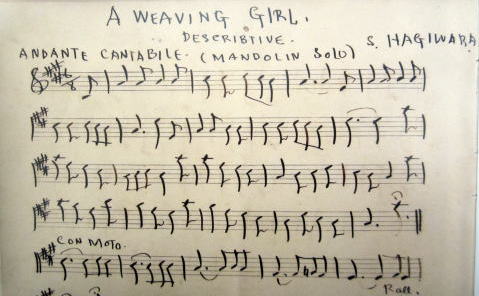 A WEAVING GIRL.
DESCRIBTIVE.
S. HAGIWARA
ANDANTE CANTABILE. (MANDOLIN SOLO)
6/8
CON MOTO.
Rall.